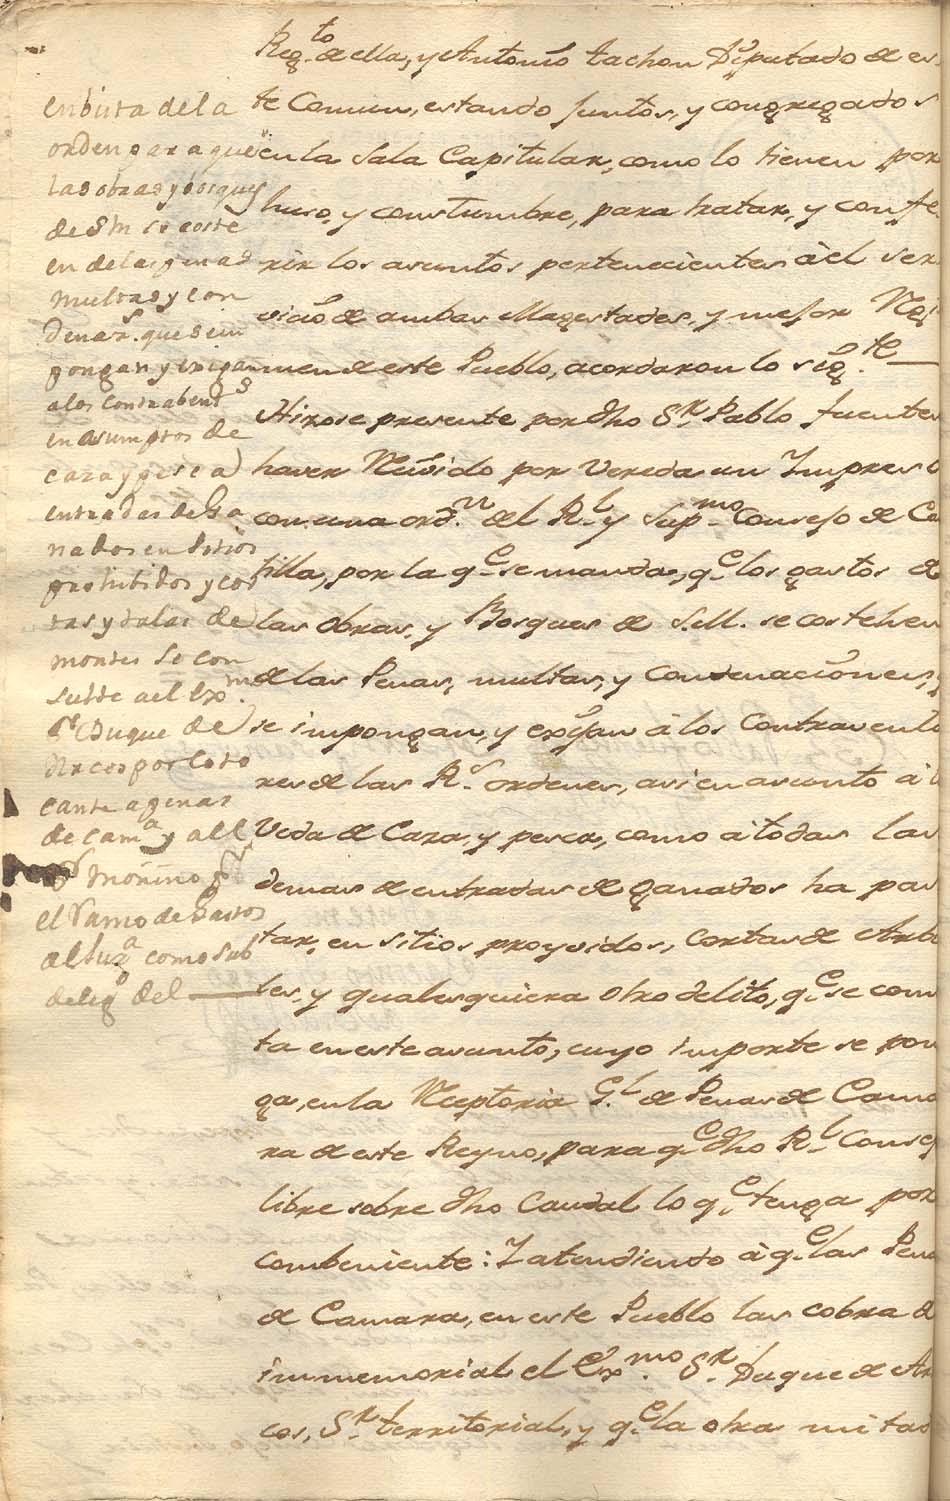 en bista de la
orden para que
las obras y bosques
de S M se coste
en de las penas
multas y con
denas.s que se im
pongan y exigan
a los contrabent.s
en asumptos de
caza y pesca
entradas de Ga
nados en Sitios
prohibidos y cor
tas y talas de
montes se con
sulte a el Ex.mo
S.r Duque de
Arcos por lo to
cante a penas
de cam.a y al
S.r Moñino
el Ramo de Gastos
de Jus.a como sub
deleg.o del
Reg.to de ella, y Antonio Tachon Diputado de es
te Comun, estando juntos, y congregados
en la Sala Capitular, como lo tienen por
huso, y constumbre, para tratar, y confe
rir los asuntos pertenecientes à el ser
vicio de ambas Magestades, y mejor Regi
men de este Pueblo, acordaron lo sig.te
Hizose presente por dho S.r Pablo fuentes
haver Recivido por Vereda un Impreso
con una ord.n del R.l y Sup.mo Consejo de Cas
tilla, por la q.e se manda, q.e los gastos de
las Obras, y Bosques de S.M. se costehen
de las Penas, multas, y Condenaciones,
se impongan, y exijan à los Contravento
res de las R.s ordenes, asi en asunto à la
Veda de Caza, y pesca, como à todas las
demas de entradas de ganados ha pas
tar, en sitios proyvidos, cortas de Arbo
les, y qualesquiera otro delito, q.e se come
ta en este asunto, cuyo importe se pon
ga, en la Receptoria G.l de Penas de Cama
ra de este Reyno, para q.e dho R.l Consejo
libre sobre dho Caudal lo q.e tenga por
combeniente: Y atendiendo à q.e las Penas
de Camara, en este Pueblo las cobra de
immemorial el Ex.mo S.r Duque de Ar
cos, S.r territorial, y q.e la otra mitad